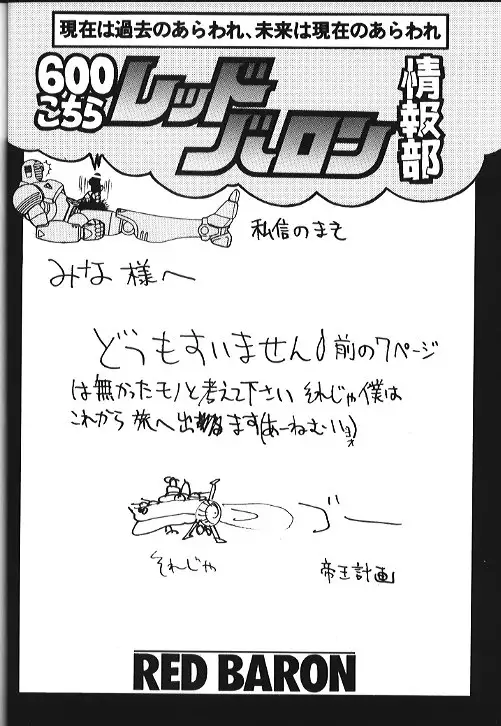 現在は過去のあらわれ、未来は現在のあらわれ
600こちら
レッドバロン
情報部
私信のまそ
みなな様へ
どうもすいません前の7ページ
は無かったモノと考えて下さい それじゃ僕は
これから旅へ出ます(あーねむい)
ゴー
それじゃ
帝王計画
RED BARON